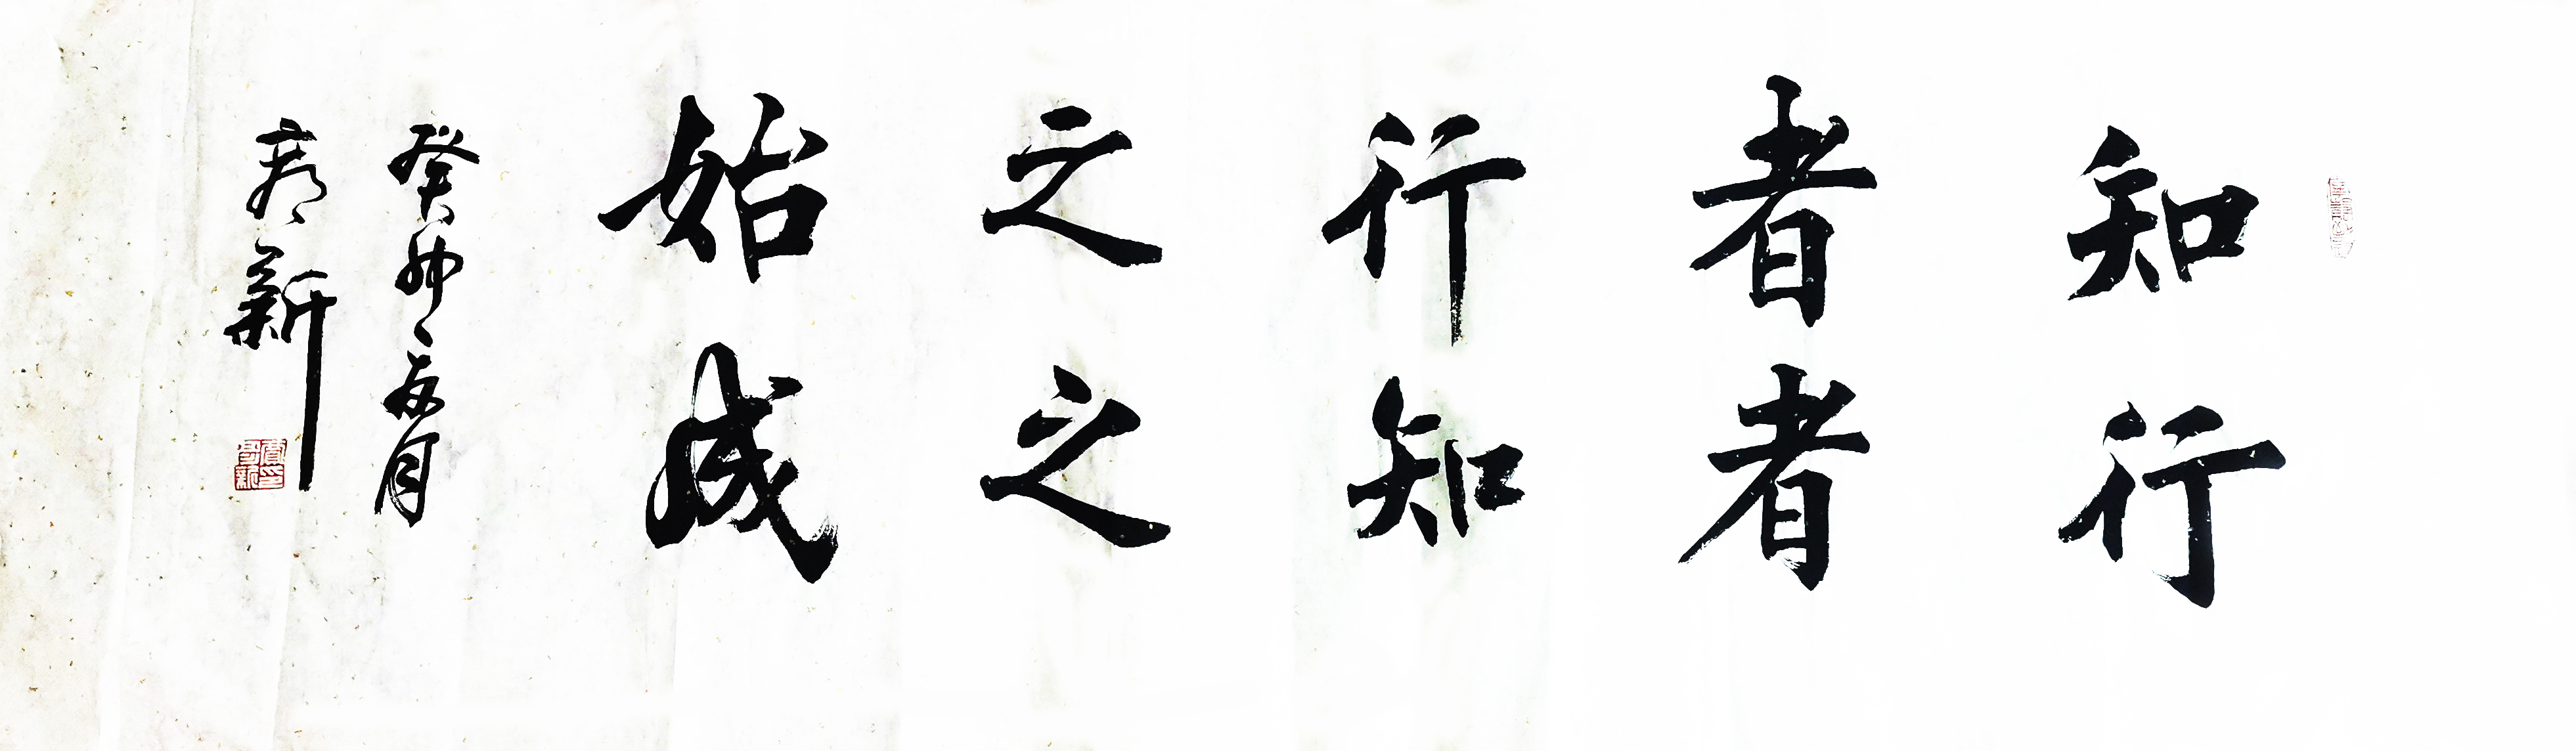 知者行之始
行者知之成
癸卯夏月
新